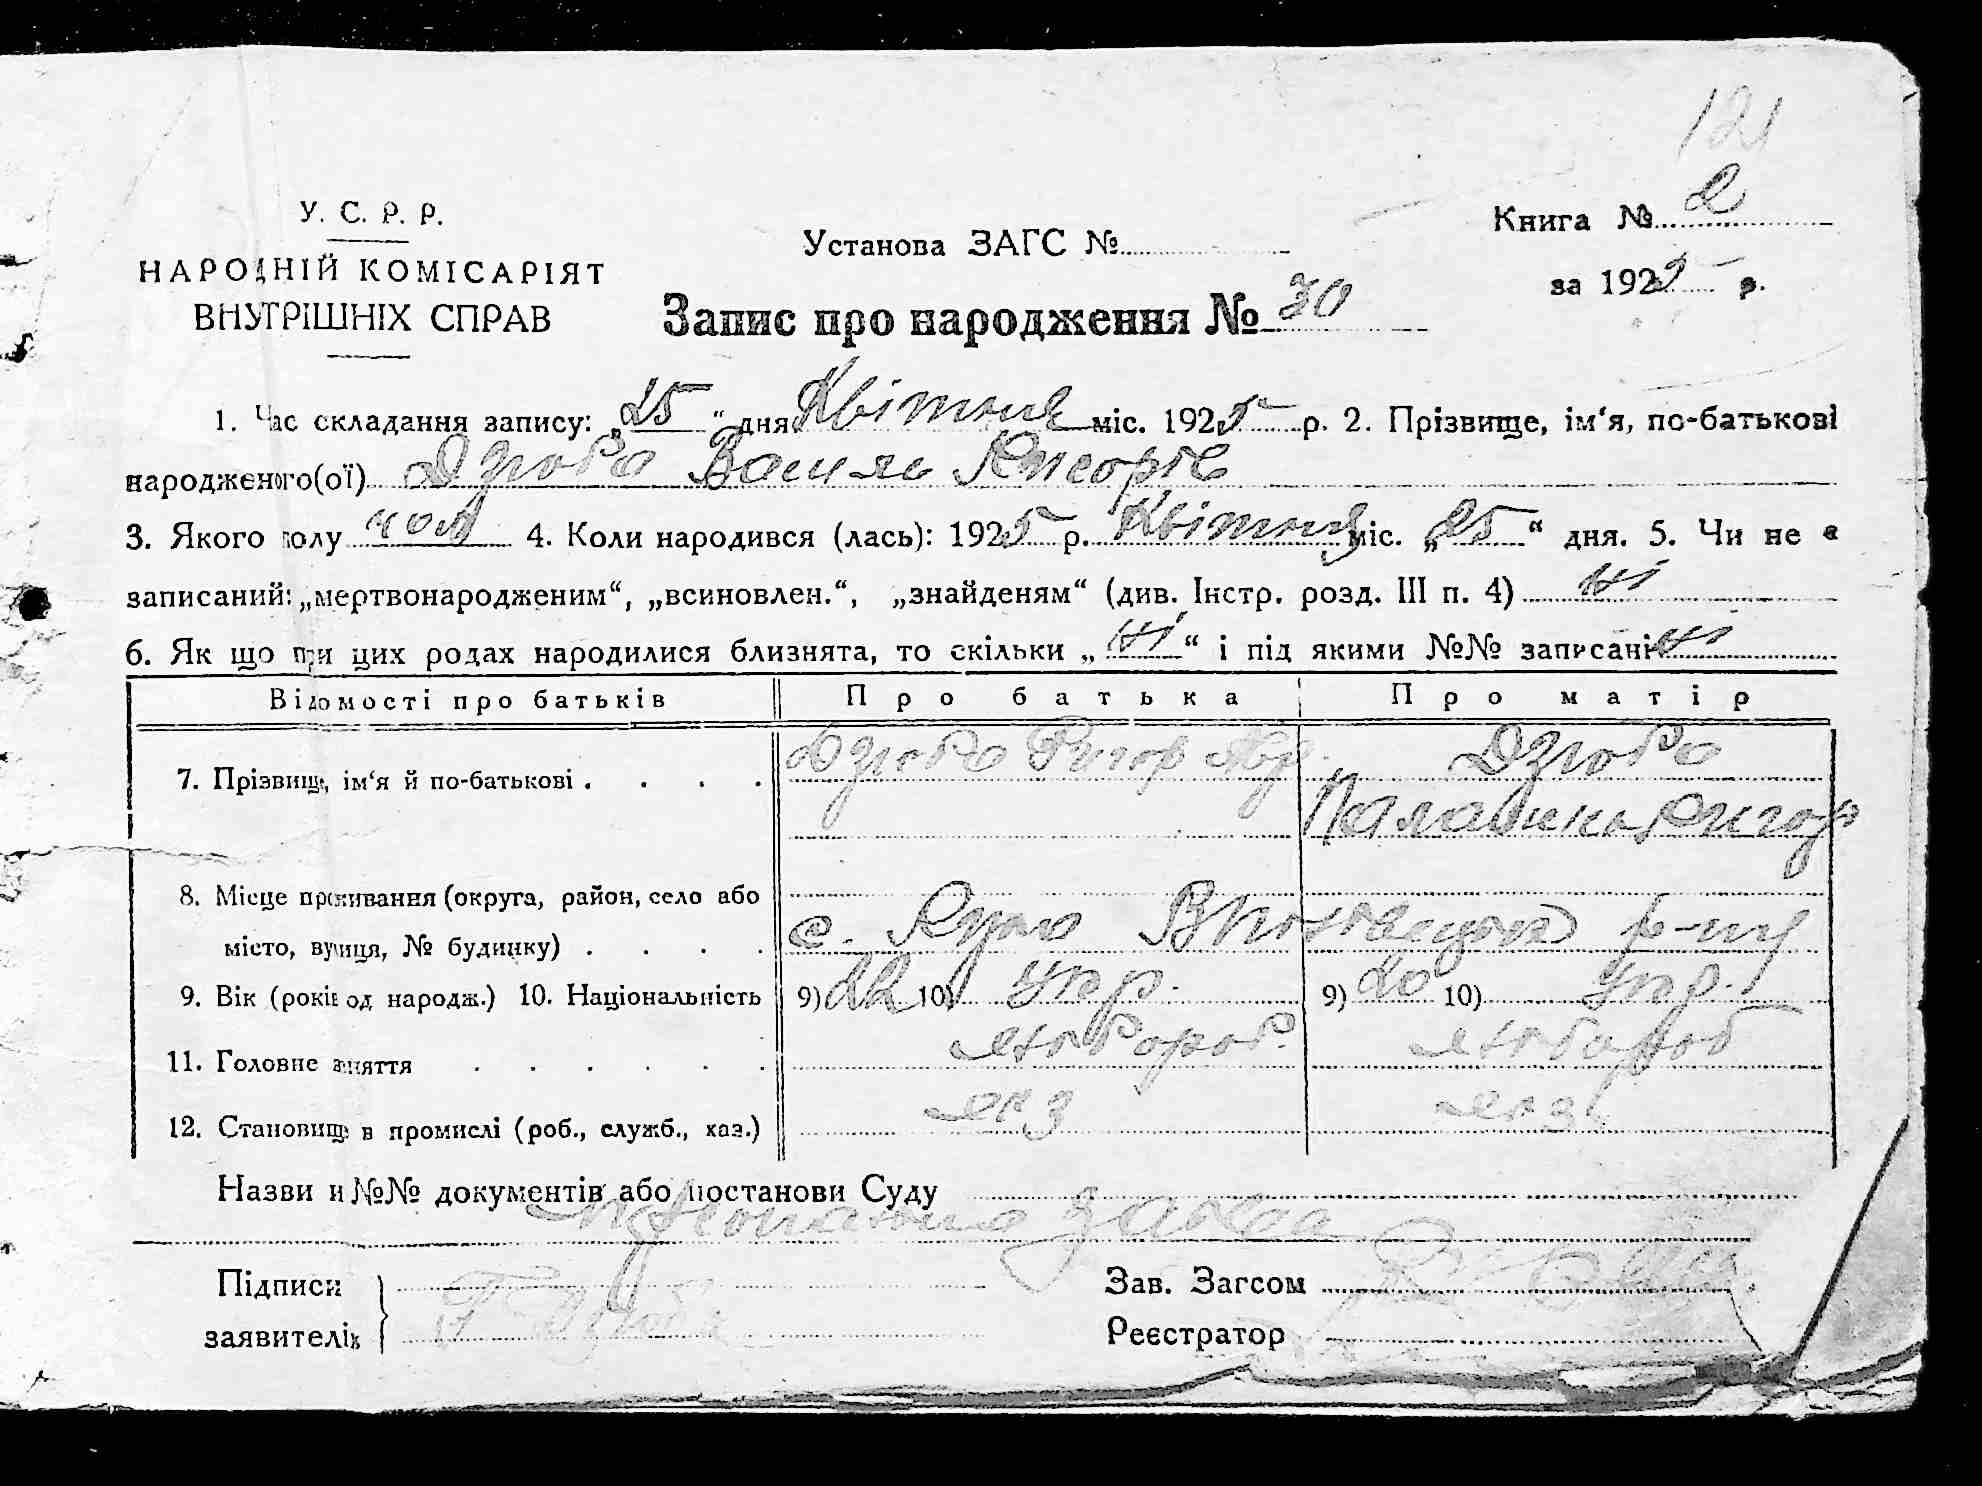 121
У. С. Р. Р.
НАРОДНІЙ КОМІСАРІЯТ
ВНУТРІШНІХ СПРАВ
Установа ЗАГС №
Книга № 2
за 1925 р.
Запис про народження № 30
1. Час складання запису: „25“ дня Квітня міс. 1925 р. 2. Прізвище, ім‘я, по-батькові
народженого(ої) Дзюба Василь
3. Якого полу чол 4. Коли народився (лась): 1925 р. Квітня міс. „25“ дня. 5. Чи не є
записаний: „мертвонародженим“, „всиновлен.“, „знайденям“ (див. Інстр. розд. III п. 4) ні
6. Як що при цих родах народилися близнята, то скільки „ні“ і під якими №№ записані ні
Відомості про батьків Про батька Про матір
7. Прізвище, ім‘я й по-батькові . . . . Дзюба Григор Дзюба
Григор
8. Місце проживання (округа, район, село або
місто, вулиця, № будинку) . . . . с. р-ну
9. Вік (років од народж.) 10. Національність 9) 22 10) Укр. 9) 20 10) Укр.
11. Головне заняття . . . . . . хлібороб. хлібороб
12. Становище в промислі (роб., служб., хаз.) хаз хаз
Назви и №№ документів або постанови Суду
заява
Підписи
заявителів Г Дзюба
Зав. Загсом
Реєстратор